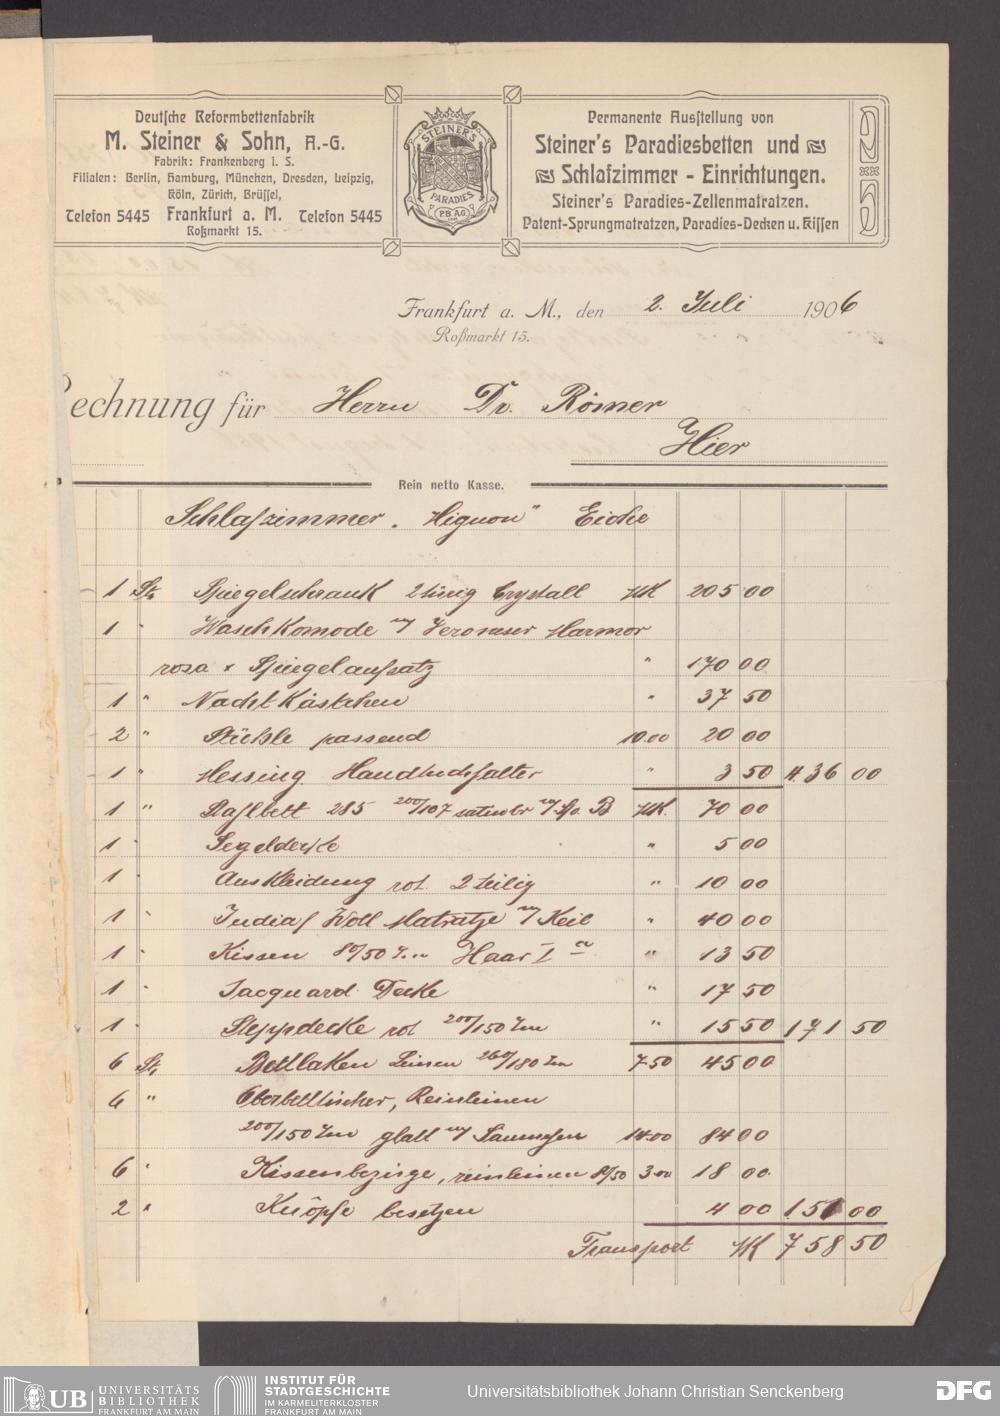 Deutsche Reformbettenfabrik
M. Steiner & Sohn, A.-G.
Fabrik: Frankenberg i. S.
Filialen: Berlin, Hamburg, München, Dresden, Leipzig,
Köln, Zürich, Brüssel,
Telefon 5445 Frankfurt a. M. Telefon 5445
Roßmarkt 15.
STEINER'S
PARADIES
P.B.A.G.
Permanente Ausstellung von
Steiner's Paradiesbetten und
Schlafzimmer - Einrichtungen.
Steiner's Paradies-Zellenmatratzen.
Patent-Sprungmatratzen, Paradies-Decken u. Kissen
Frankfurt a. M., den 2. Juli 1906
Roßmarkt 15.
echnung für Herrn Dr. Römer
Hier
Rein netto Kasse.
Schlafzimmer "Mignon" Eiche
1 St. Spiegelschrank 2türig Crystall Mk 205 00
1 " Waschkomode m/ Veroneser Marmor
rosa & Spiegelaufsatz " 170 00
1 " Nachtkästchen " 37 50
2 " Stühle passend 10.00 20 00
1 " Messing Handtuchhalter " 3 50 436 00
1 " Stahlbett 285 200/107 m/ B Mk. 70 00
1 " Segeldecke " 5 00
1 " Auskleidung rot 2teilig " 10 00
1 " Indiaf Woll Matratze m/ Keil " 40 00
1 " Kissen 80/50 Haar I a " 13 50
1 " Jacquard Decke " 17 50
1 " Steppdecke rot 200/150 cm " 15 50 171 50
6 St. Bettlaken Leinen 260/180 cm 7 50 45 00
6 " Oberbetttücher, Reinleinen
200/150 cm glatt m/ 14.00 84 00
6 " Kissenbezüge, reinleinen 80/50 3.00 18 00
2 " Knöpfe besetzen 4 00 151 00
Transport Mk 758 50
UB UNIVERSITÄTS
BIBLIOTHEK
FRANKFURT AM MAIN
INSTITUT FÜR
STADTGESCHICHTE
IM KARMELITERKLOSTER
FRANKFURT AM MAIN
Universitätsbibliothek Johann Christian Senckenberg
DFG